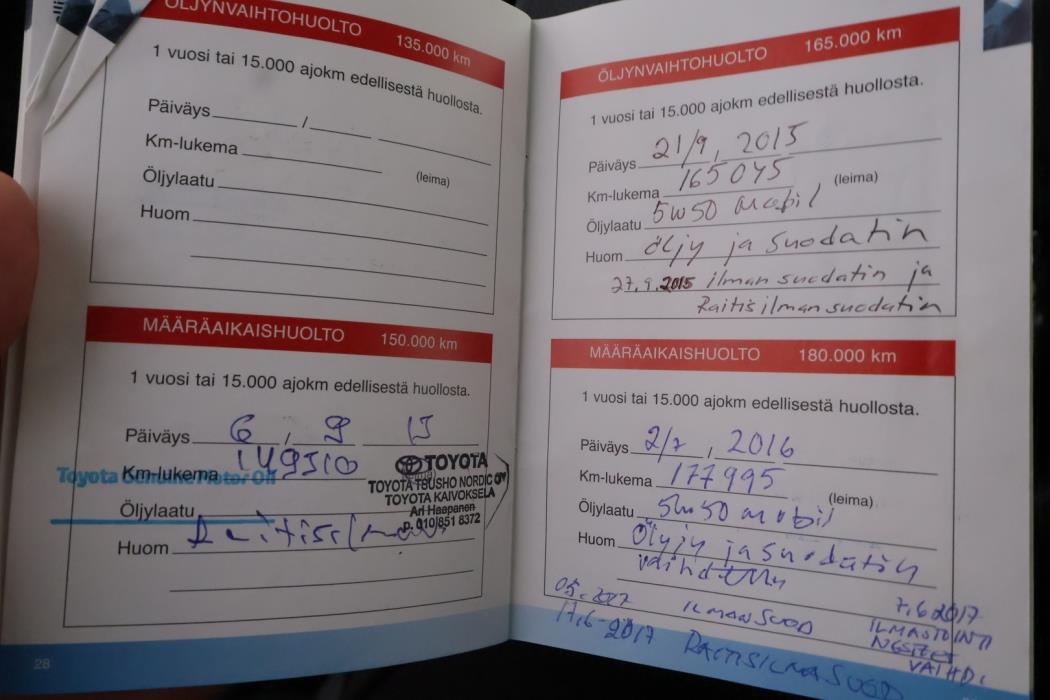 ÖLJYNVAIHTOHUOLTO 135.000 km
1 vuosi tai 15.000 ajokm edellisestä huollosta.
Päiväys /
Km-lukema
(leima)
Öljylaatu
Huom
MÄÄRÄAIKAISHUOLTO 150.000 km
1 vuosi tai 15.000 ajokm edellisestä huollosta.
Päiväys 6 / 9 15
Km-lukema 149510
Toyota Genuine Motor Oil
TOYOTA
TOYOTA TSUSHO NORDIC OY
TOYOTA KAIVOKSELA
Ari Haapanen
p. 010 851 8372
Öljylaatu
Huom
28
ÖLJYNVAIHTOHUOLTO 165.000 km
1 vuosi tai 15.000 ajokm edellisestä huollosta.
Päiväys 21/9, 2015
Km-lukema 165045
(leima)
Öljylaatu 5W50 mobil
Huom öljy ja suodatin
27.9.2015 ilman suodatin ja
Raitis ilman suodatin
MÄÄRÄAIKAISHUOLTO 180.000 km
1 vuosi tai 15.000 ajokm edellisestä huollosta.
Päiväys 2/7, 2016
Km-lukema 177995
(leima)
Öljylaatu 5W50 mobil
Huom Öljy ja suodatin
05.2017 ILMANSUOD
17.6-2017 RAITISILMASUOD
7.6 2017
ILMASTOINTI
VAIHD.